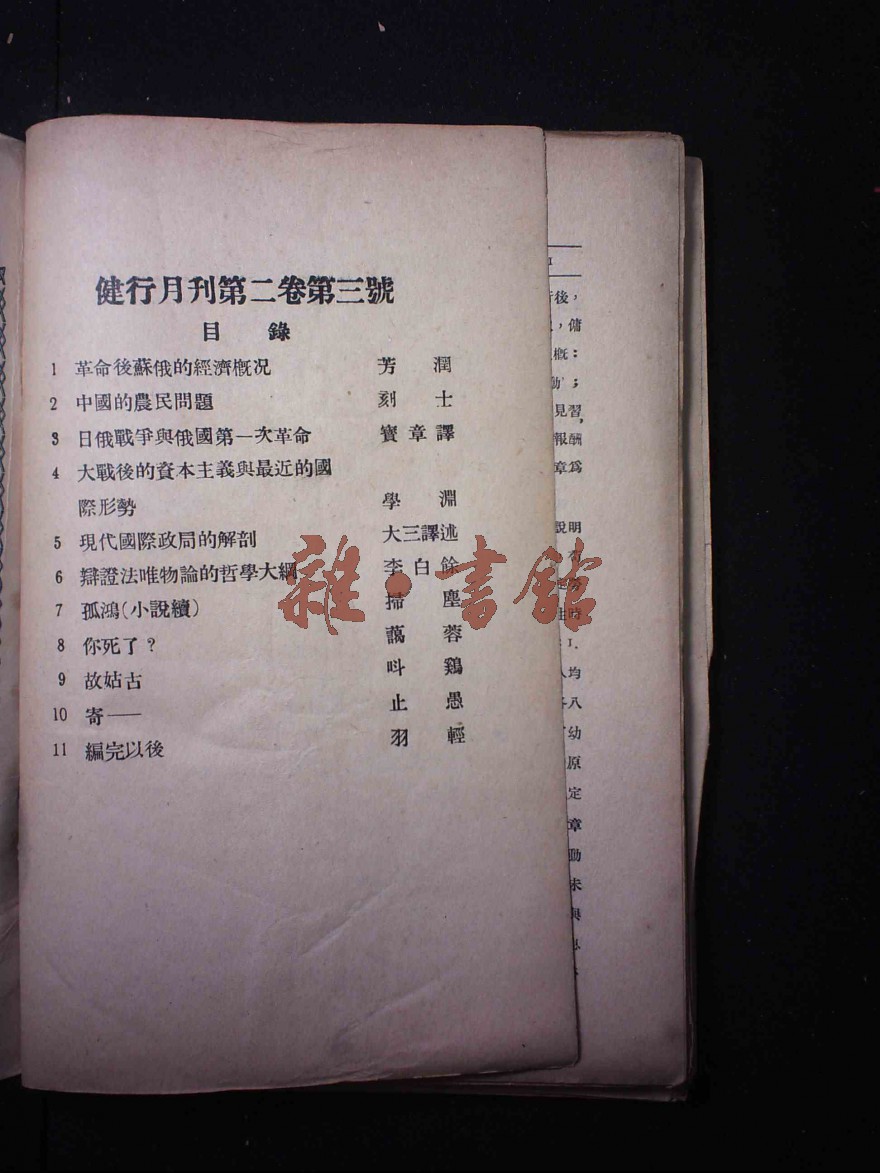 健行月刊第二卷第三號
目錄
1 革命後蘇俄的經濟概况 芳潤
2 中國的農民問題 刻士
3 日俄戰爭與俄國第一次革命 寶章譯
4 大戰後的資本主義與最近的國
際形勢 學淵
5 現代國際政局的解剖 大三譯述
6 辯證法唯物論的哲學大綱 李白餘
7 孤鴻(小說續) 掃塵
8 你死了? 蕅蓉
9 故姑古 呌鷄
10 寄—— 止愚
11 編完以後 羽輕
雜·書館
後,
,傭
概:
動;
見習,
報酬
章爲
說明
時
1.
均
八
幼
原
定
章
勤
未
與